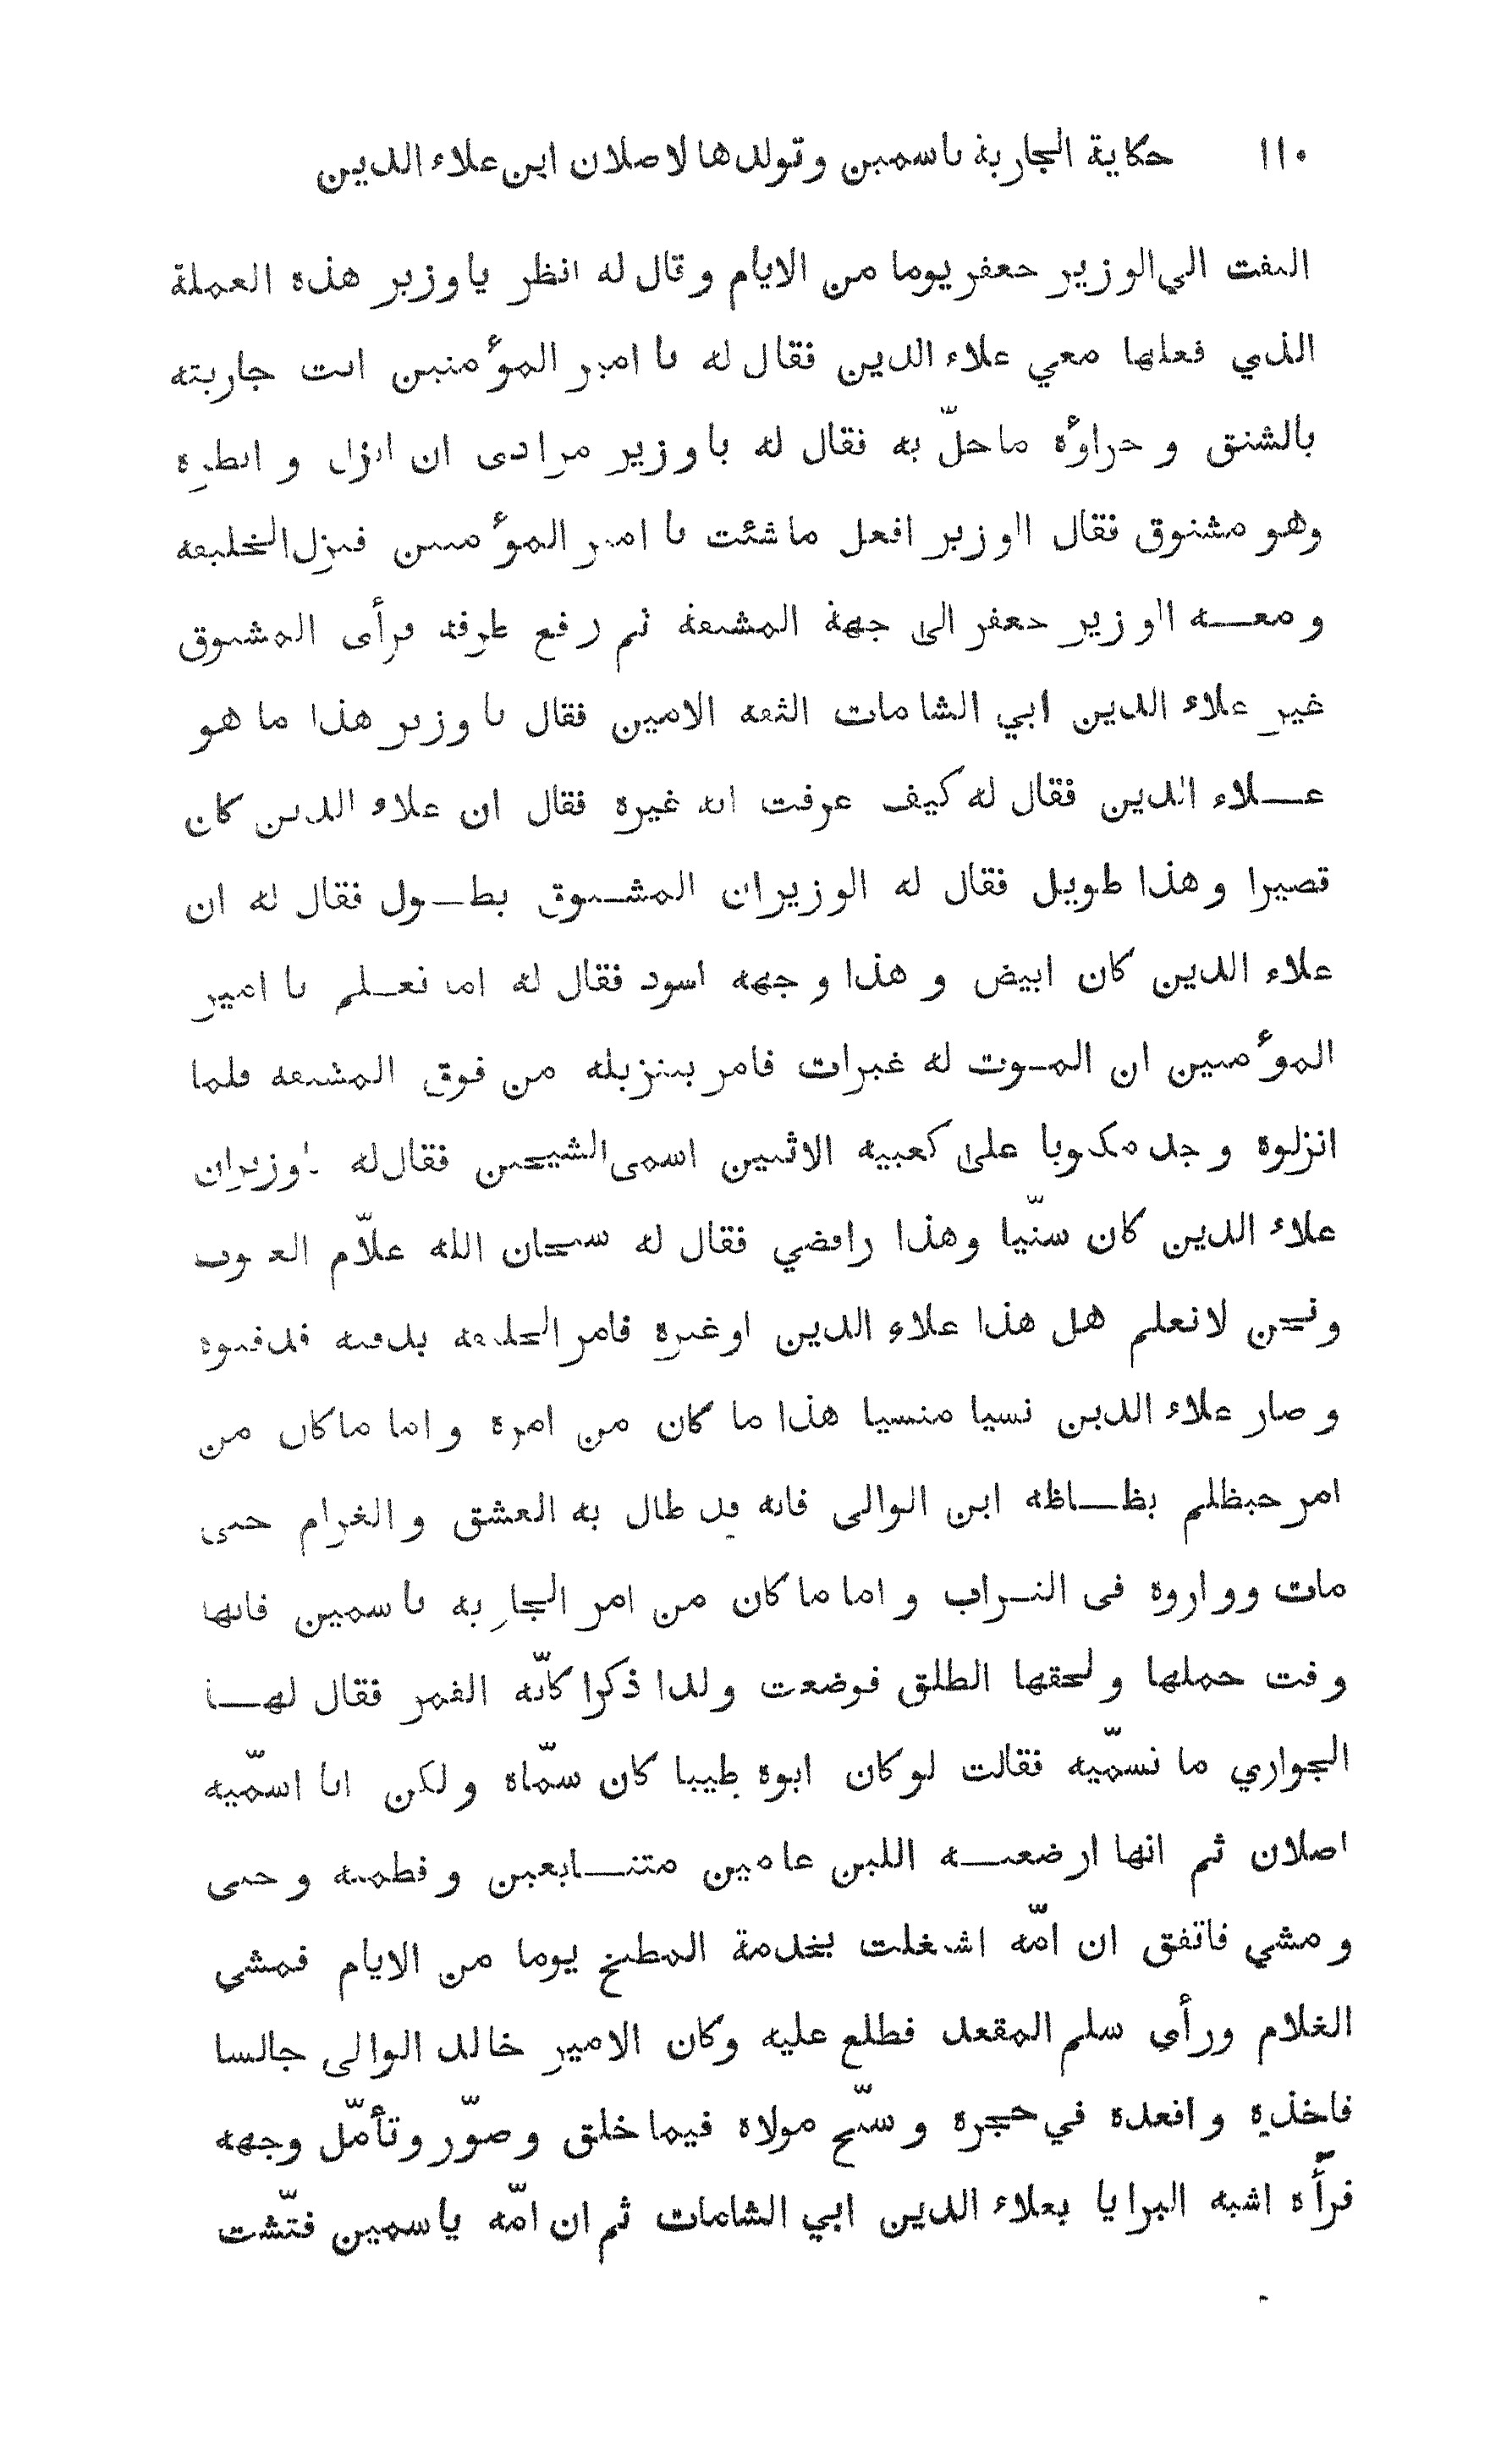 ١١٠ حكاية الجارية ياسمين وتولدها لاصلان ابن علاء الدين
التفت الي الوزير جعفر يوما من الايام وقال له انظر يا وزير هذه العملة
الذي فعلها معي علاء الدين فقال له يا امير المؤمنين انت جاريته
بالشنق وجراؤه ما حلّ به فقال له يا وزير مرادى ان انزل وانظره
وهو مشنوق فقال الوزير افعل ما شئت يا امير المؤمنين فنزل الخليفة
ومعه الوزير جعفر الى جهة المشنقة ثم رفع طرفه فرأى المشنوق
غير علاء الدين ابي الشامات الثقة الامين فقال يا وزير هذا ما هو
علاء الدين فقال له كيف عرفت انه غيره فقال ان علاء الدين كان
قصيرا وهذا طويل فقال له الوزير ان المشنوق يطول فقال له ان
علاء الدين كان ابيض وهذا وجهه اسود فقال له اما تعلم يا امير
المؤمنين ان الموت له غبرات فامر بتنزيله من فوق المشنقة فلما
انزلوه وجد مكتوبا على كعبيه الاثنين اسمى الشيخين فقال له يا وزير ان
علاء الدين كان سنّيا وهذا رافضي فقال له سبحان الله علّام الغيوب
ونحن لا نعلم هل هذا علاء الدين او غيره فامر الخليفة بدفنه فدفنوه
وصار علاء الدين نسيا منسيا هذا ما كان من امره واما ما كان من
امر حبظلم بظاظه ابن الوالى فانه قد طال به العشق والغرام حتى
مات وواروه فى التراب واما ما كان من امر الجارية ياسمين فانها
وفت حملها ولحقها الطلق فوضعت ولدا ذكرا كأنّه القمر فقال لها
الجواري ما نسمّيه فقالت لو كان ابوه طيبا كان سمّاه ولكن انا اسمّيه
اصلان ثم انها ارضعته اللبن عامين متتابعين وفطمته وحبى
ومشي فاتفق ان امّه اشتغلت بخدمة المطبخ يوما من الايام فمشى
الغلام ورأى سلم المقعد فطلع عليه وكان الامير خالد الوالى جالسا
فاخذه واقعده في حجره وسبّح مولاه فيما خلق وصوّر وتأمّل وجهه
فرأه اشبه البرايا بعلاء الدين ابي الشامات ثم ان امّه ياسمين فتّشت